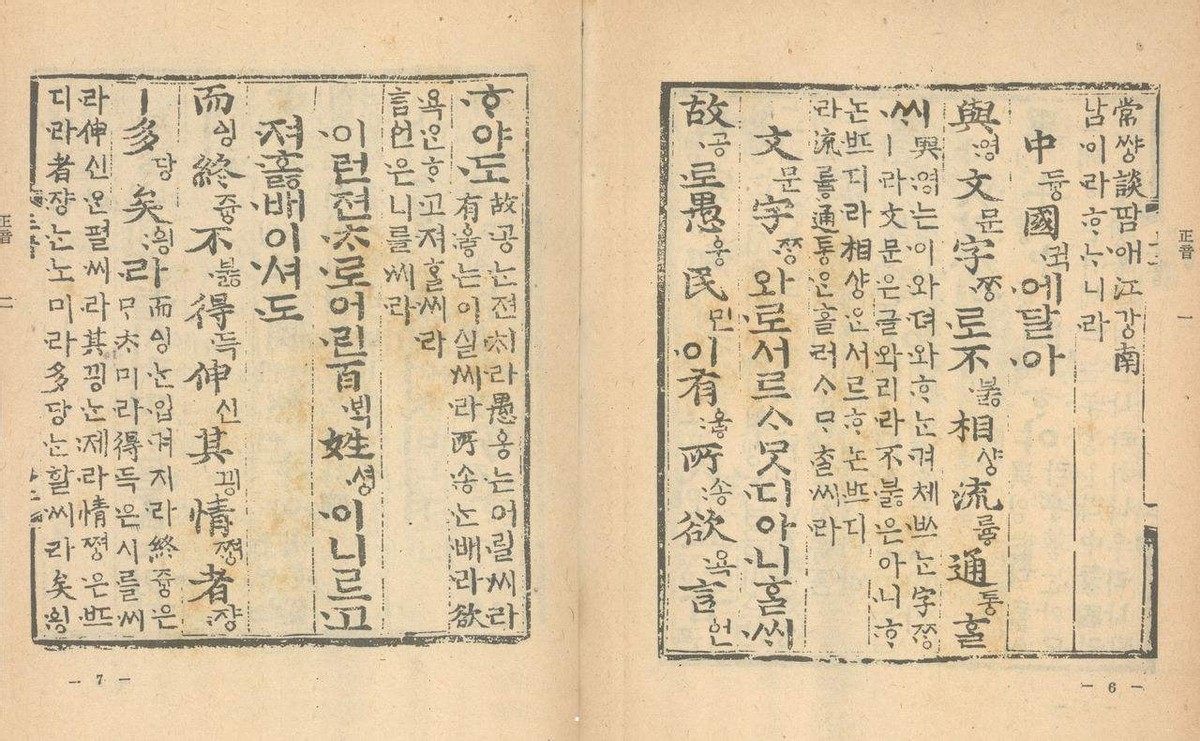 常쌰ᇰ談땀애江가ᇰ南
남이라ᄒᆞᄂᆞ니라
中듀ᇰ國귁에달아
與영文문字ᄍᆞᆼ로不부ᇙ相샤ᇰ流류ᇢ通토ᇰᄒᆞᆯ
ᄊᆡ與영는이와뎌와ᄒᆞᄂᆞᆫ겨체ᄡᅳᄂᆞᆫ字ᄍᆞᆼ
ㅣ라文문은글와리라不부ᇙ은아니ᄒᆞ
논ᄠᅳ디라相샤ᇰᄋᆞᆫ서르ᄒᆞ논ᄠᅳ디
라流류ᇢ通토ᇰᄋᆞᆫ흘러ᄉᆞᄆᆞᄎᆞᆯ씨라
文문字ᄍᆞᆼ와로서르ᄉᆞᄆᆞᆺ디아니ᄒᆞᆯᄊᆡ
故공로愚ᅌᅮᆼ民민이有우ᇢ所송欲욕言언
正音 一
— 6 —
ᄒᆞ야도故공ᄂᆞᆫ젼ᄎᆡ라愚ᅌᅮᆼ는어릴씨라
有우ᇢ는이실씨라所송ᄂᆞᆫ배라欲
욕ᄋᆞᆫᄒᆞ고져ᄒᆞᆯ씨라
言언은니를씨라
이런젼ᄎᆞ로어린百ᄇᆡᆨ姓셔ᇰ이니르고
져호ᇙ배이셔도
而ᅀᅵᆼ終쥬ᇰ不부ᇙ得득伸신其끵情쪄ᇰ者쟝
ㅣ多당矣ᅌᅴᆼ라而ᅀᅵᆼᄂᆞᆫ입겨지라終쥬ᇰ은
ᄆᆞᄎᆞ미라得득은시를씨
라伸신ᄋᆞᆫ펼씨라其끵ᄂᆞᆫ제라情쪄ᇰ은ᄠᅳ
디라者쟝ᄂᆞᆫ노미라多당ᄂᆞᆫ할씨라矣ᅌᅴᆼ
正音 二
— 7 —